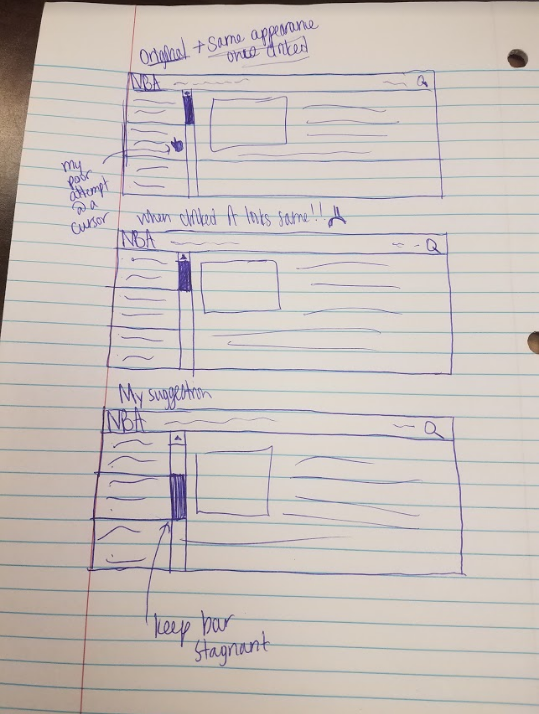 Original + Same appearance
once clicked
NBA
my
poor
attempt
@ a
cursor
when clicked it looks same!!
NBA
My suggestion
NBA
keep bar
stagnant